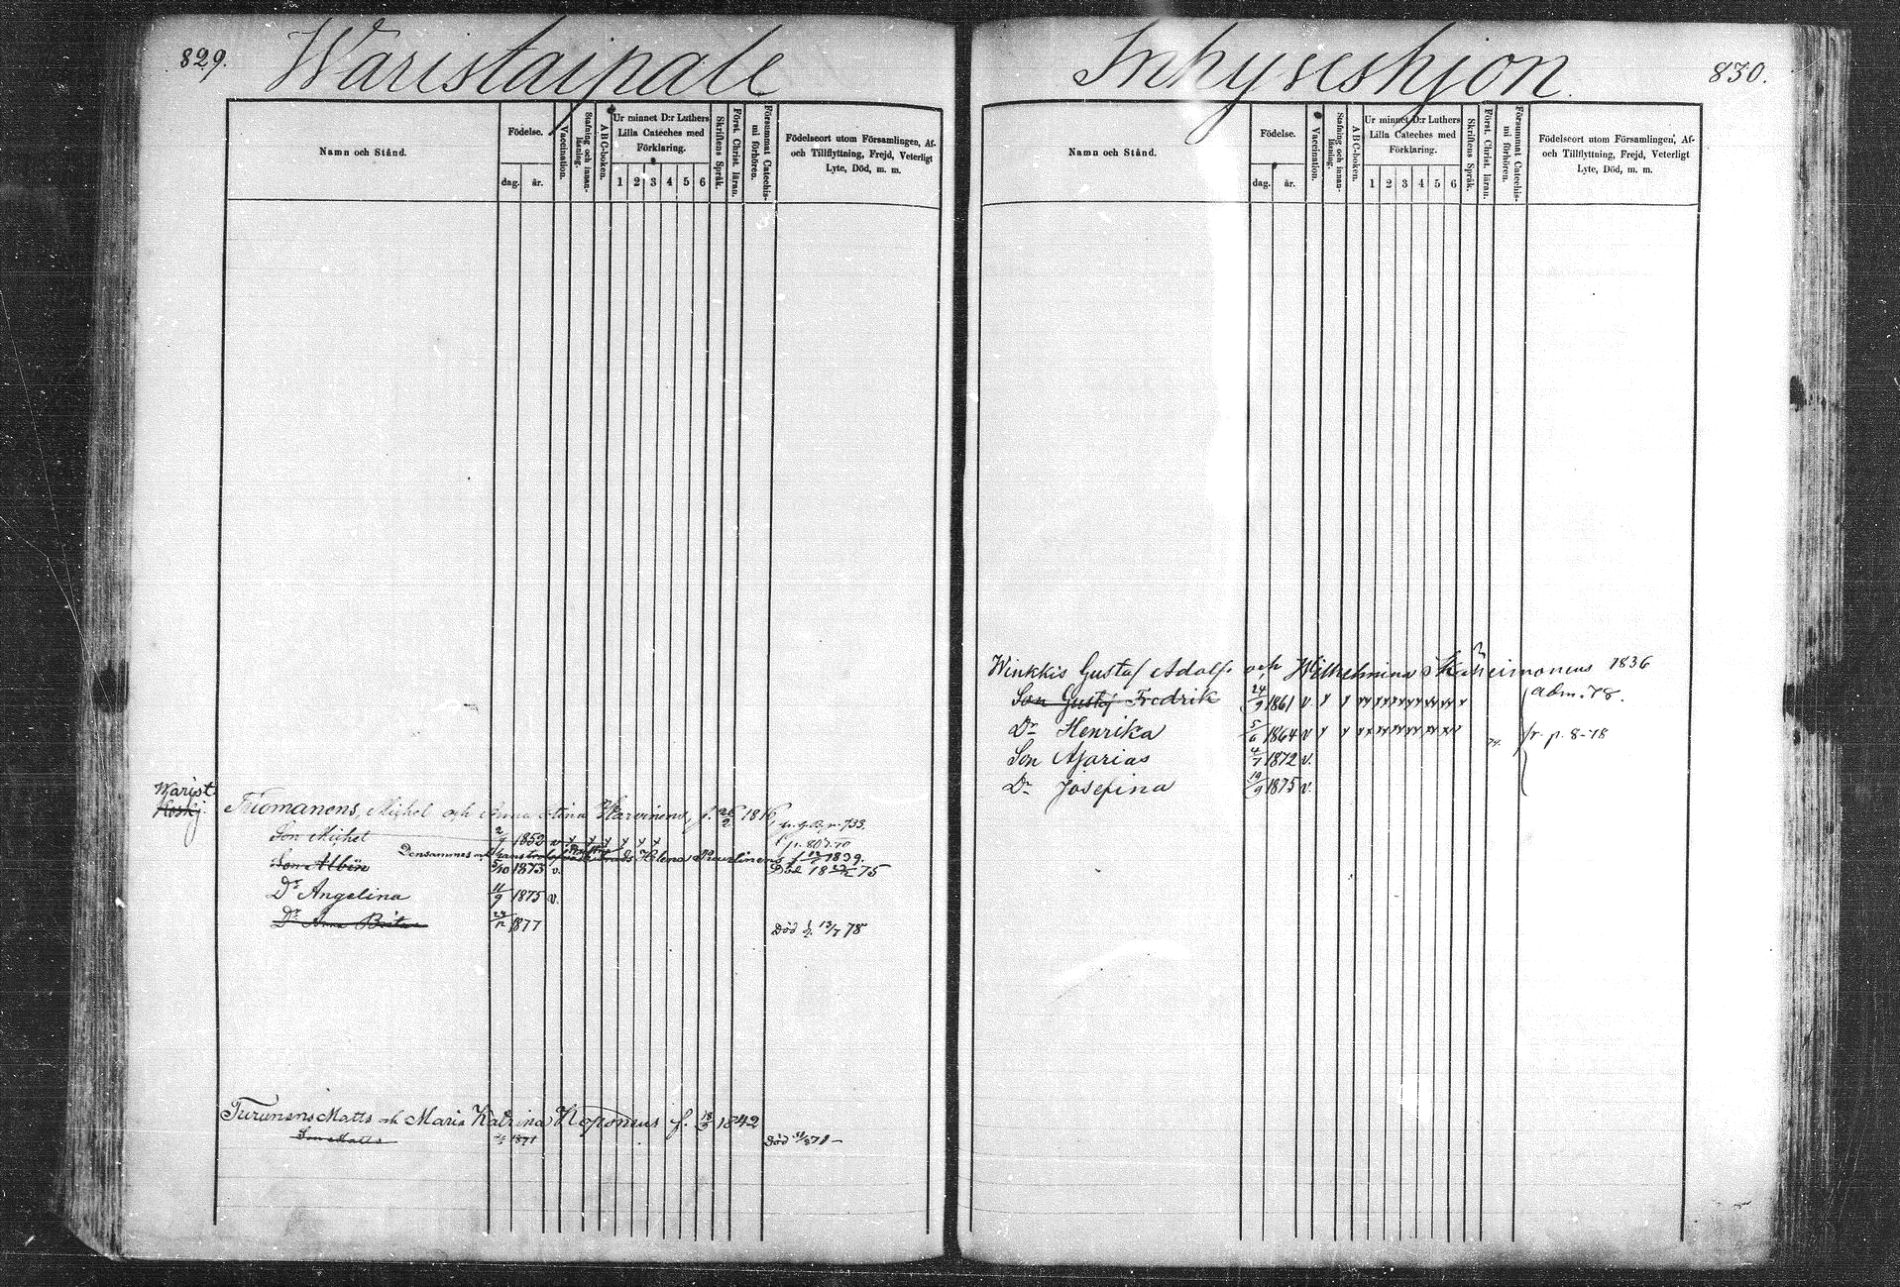 829. Waristaipale
Namn och Stånd.
Födelse.
dag. år.
Vaccination.
Stafning och innan-läsning.
A B C-boken.
Ur minnet D:r Luthers
Lilla Cateches med
Förklaring.
1 2 3 4 5 6
Skriftens Språk.
Först. Christ. läran.
Försummat Catechis-mi förhören.
Födelseort utom Församlingen, Af-
och Tillflyttning, Frejd, Veterligt
Lyte, Död, m. m.
Warist.
Michel och Anna Stina 1816
Son Michel 1852 v
Densammes Helena 1839.
Son Albin 5/10 1873 v. Död 75
Dr Angelina 11/9 1875 v.
Dr Anna Brita 1877 Död d. 13/7 78
Turunens Matts och Maria Katrina f. 1842
Son Matts 1871 Död
Inhyseshjon 830.
Namn och Stånd.
Födelse.
dag. år.
Vaccination.
Stafning och innan-läsning.
A B C-boken.
Ur minnet D:r Luthers
Lilla Cateches med
Förklaring.
1 2 3 4 5 6
Skriftens Språk.
Först. Christ. läran.
Försummat Catechis-mi förhören.
Födelseort utom Församlingen, Af-
och Tillflyttning, Frejd, Veterligt
Lyte, Död, m. m.
Winkkis Gustaf Adolf och Wilhelmina 1836
Son Gustaf Fredrik 24/9 1861 v. adm. 78.
Dr Henrika 5/6 1864 v p. 8-78
Son 4/7 1872 v.
Dr Josefina 19/9 1875 v.